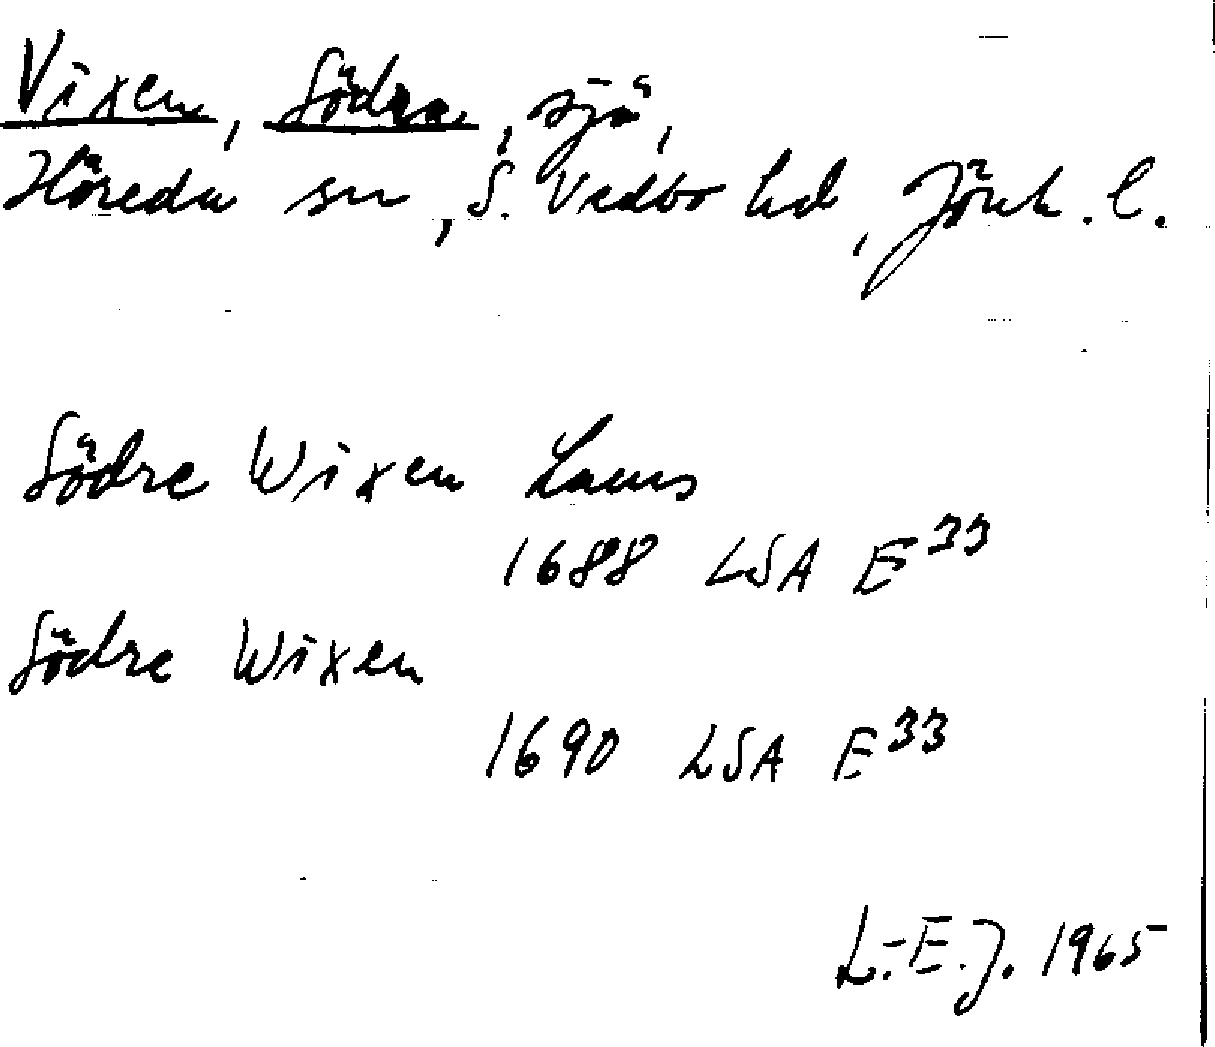 Vixen, Södra, sjö,
Höreda sn, S. Vedbo hd, Jönk. l.
Södre Wixen Lacus
1688 LSA E33
Södre Wixen
1690 LSA E33
L.-E.J. 1965